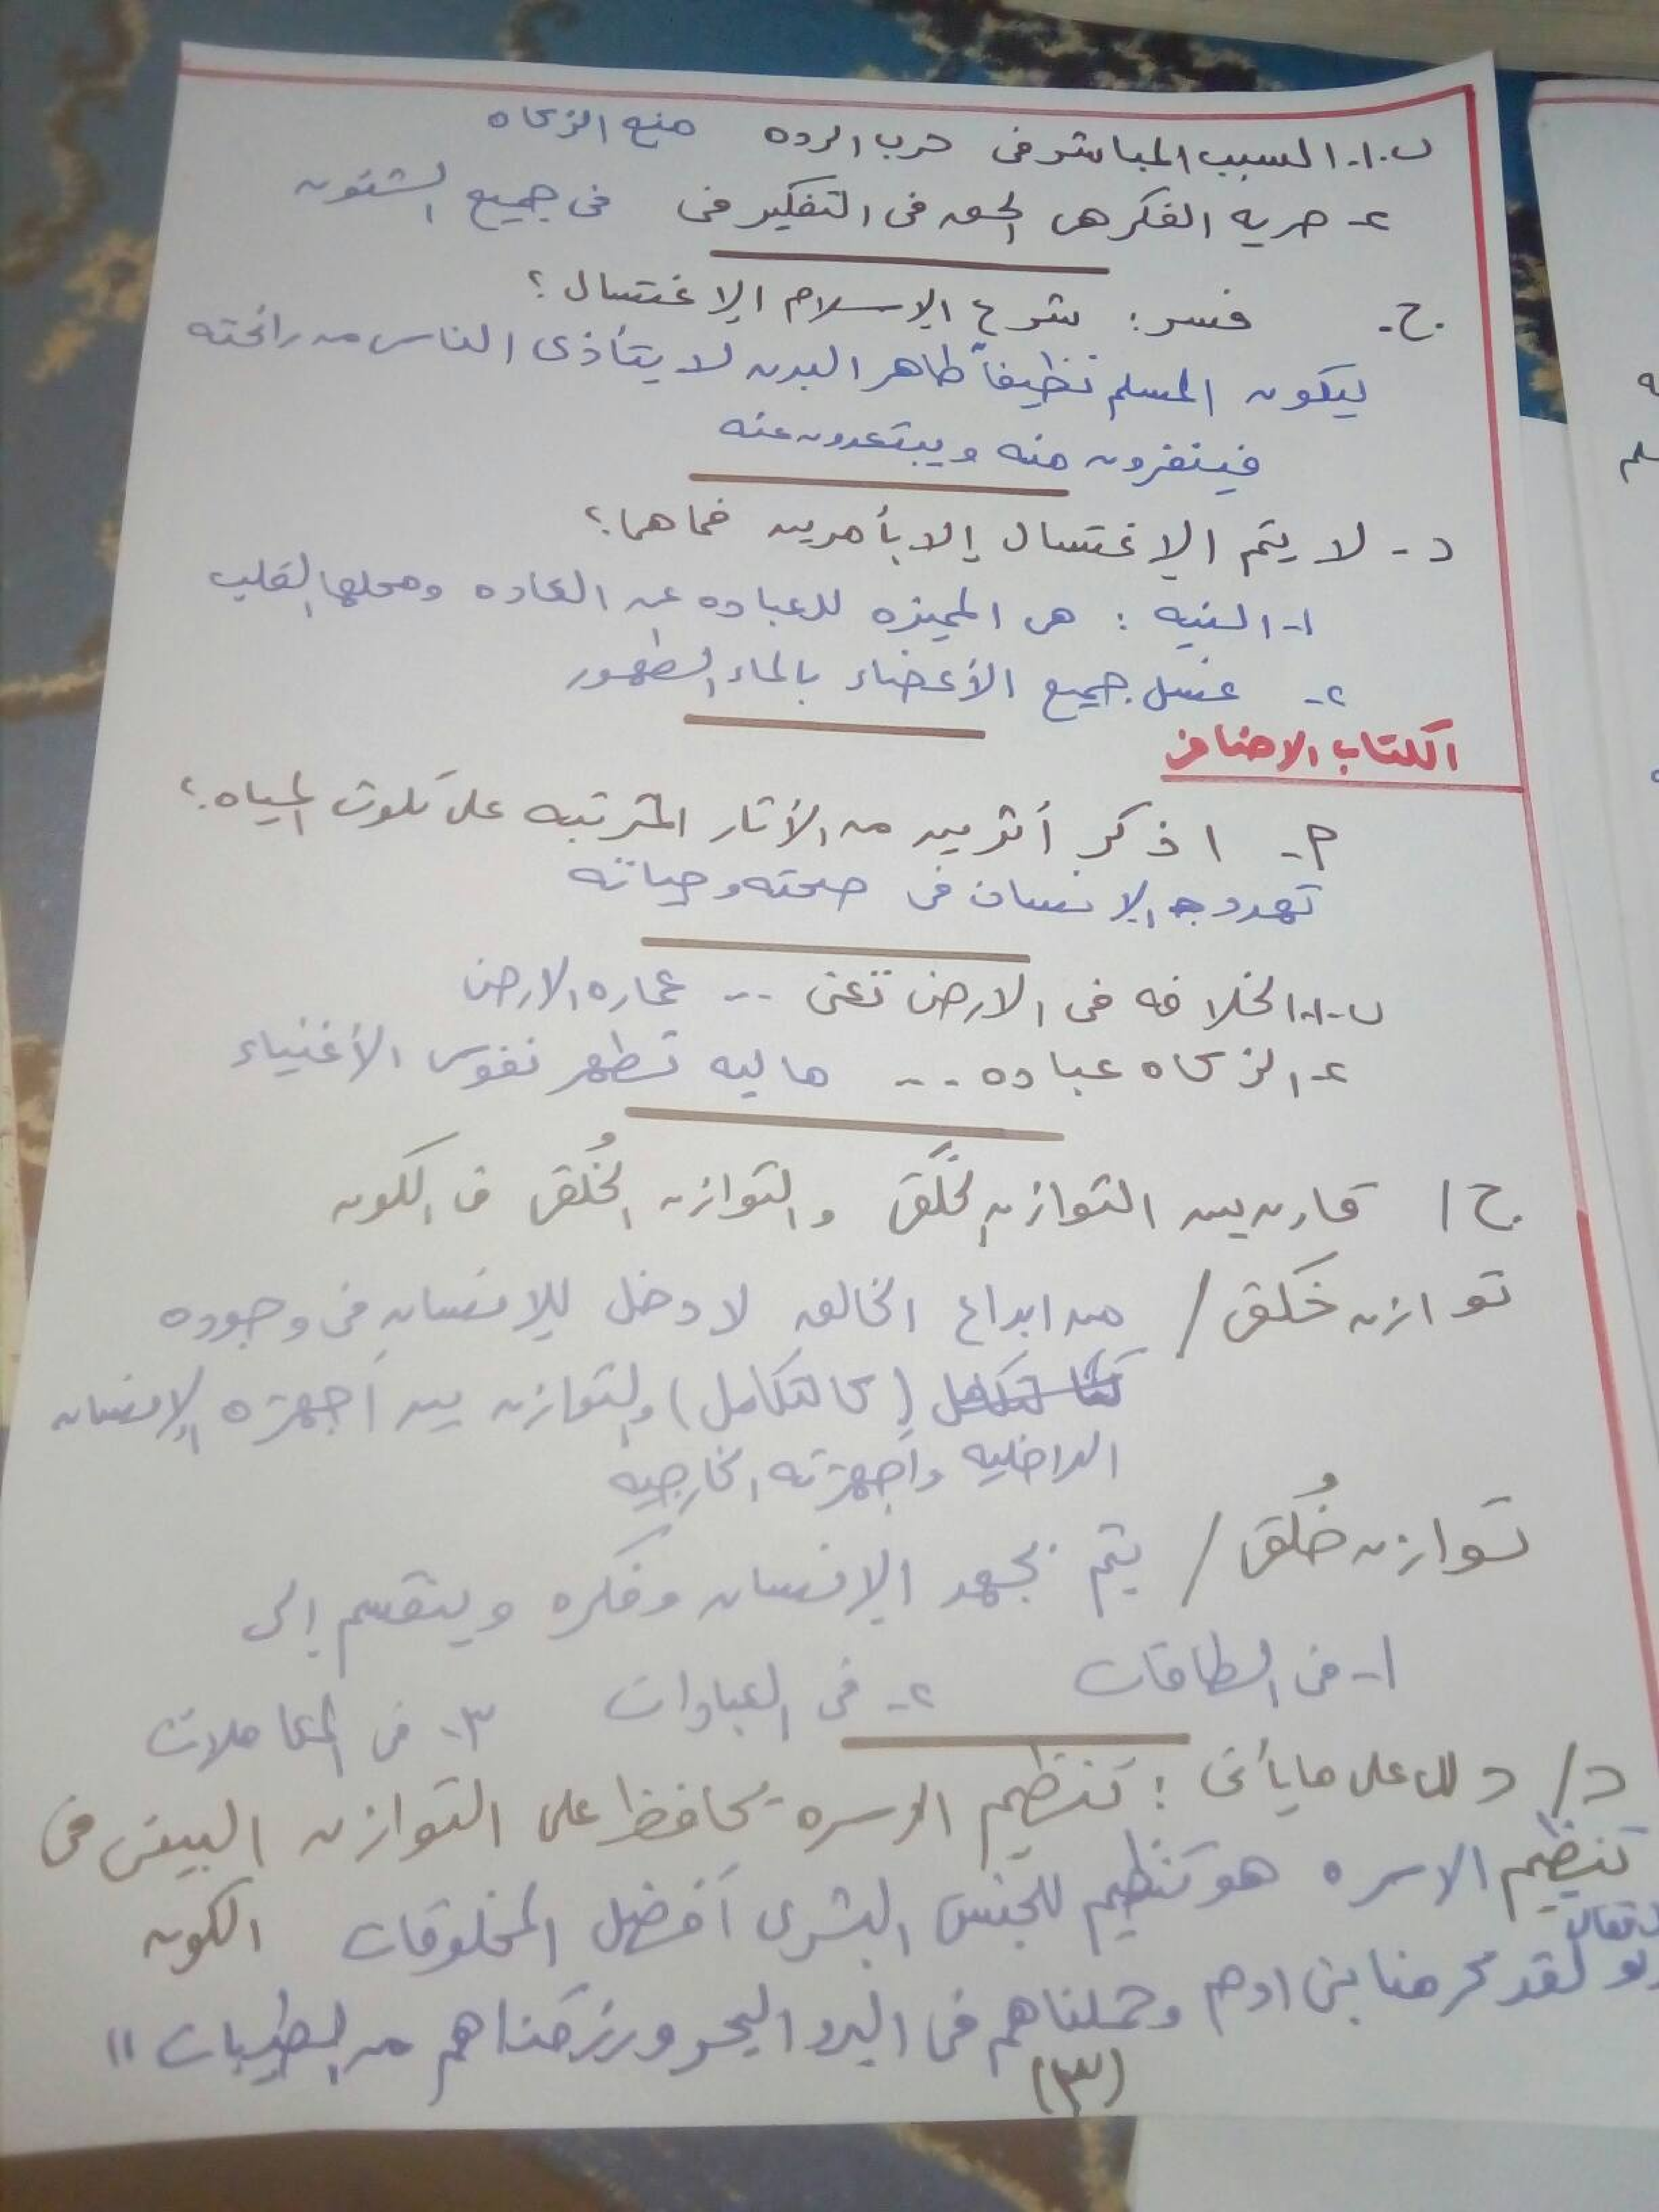 ب.١- السبب المباشر فى حرب الرده منع الزكاه
٢- حريه الفكر هى الحق فى التفكير فى فى جميع الشئون
ج- فسر: شرع الإسلام الإغتسال؟
ليكون المسلم نظيفاً طاهر البدن لا يتأذى الناس من رائحته
فينفرون منه ويبتعدون عنه
د- لا يتم الإغتسال إلا بأمرين فما هما؟
١- النيه: هى المميزه للعباده عن العاده ومحلها القلب
٢- غسل جميع الأعضاء بالماء الطهور
الكتاب الاضافى
٢- اذكر أثرين من الأثار المترتبه على تلوث المياه؟
تهدد الإنسان فى صحته وحياته
ب-١- الخلافه فى الارض تعنى ... عماره الارض
٢- الزكاه عباده ... ماليه تطهر نفوس الأغنياء
ج/ قارن بين التوازن الخَلقى والتوازن الخُلقى فى الكون
توازن خَلقى / من ابداع الخالق لا دخل للإنسان فى وجوده
(كالتكامل) والتوازن بين أجهزه الإنسان
الداخليه وأجهزته الخارجيه
توازن خُلقى / يتم بجهد الإنسان وفكره وينقسم إلى
١- فى الطاقات ٢- فى العبادات ٣- فى المعاملات
د/ دلل على ما يأتى: تنظيم الاسره يحافظ على التوازن البيئى فى
الكون
تنظيم الاسره هو تنظيم للجنس البشرى أفضل المخلوقات
ولقد كرمنا بنى ادم وحملناهم فى البر والبحر ورزقناهم من الطيبات "
(٣)